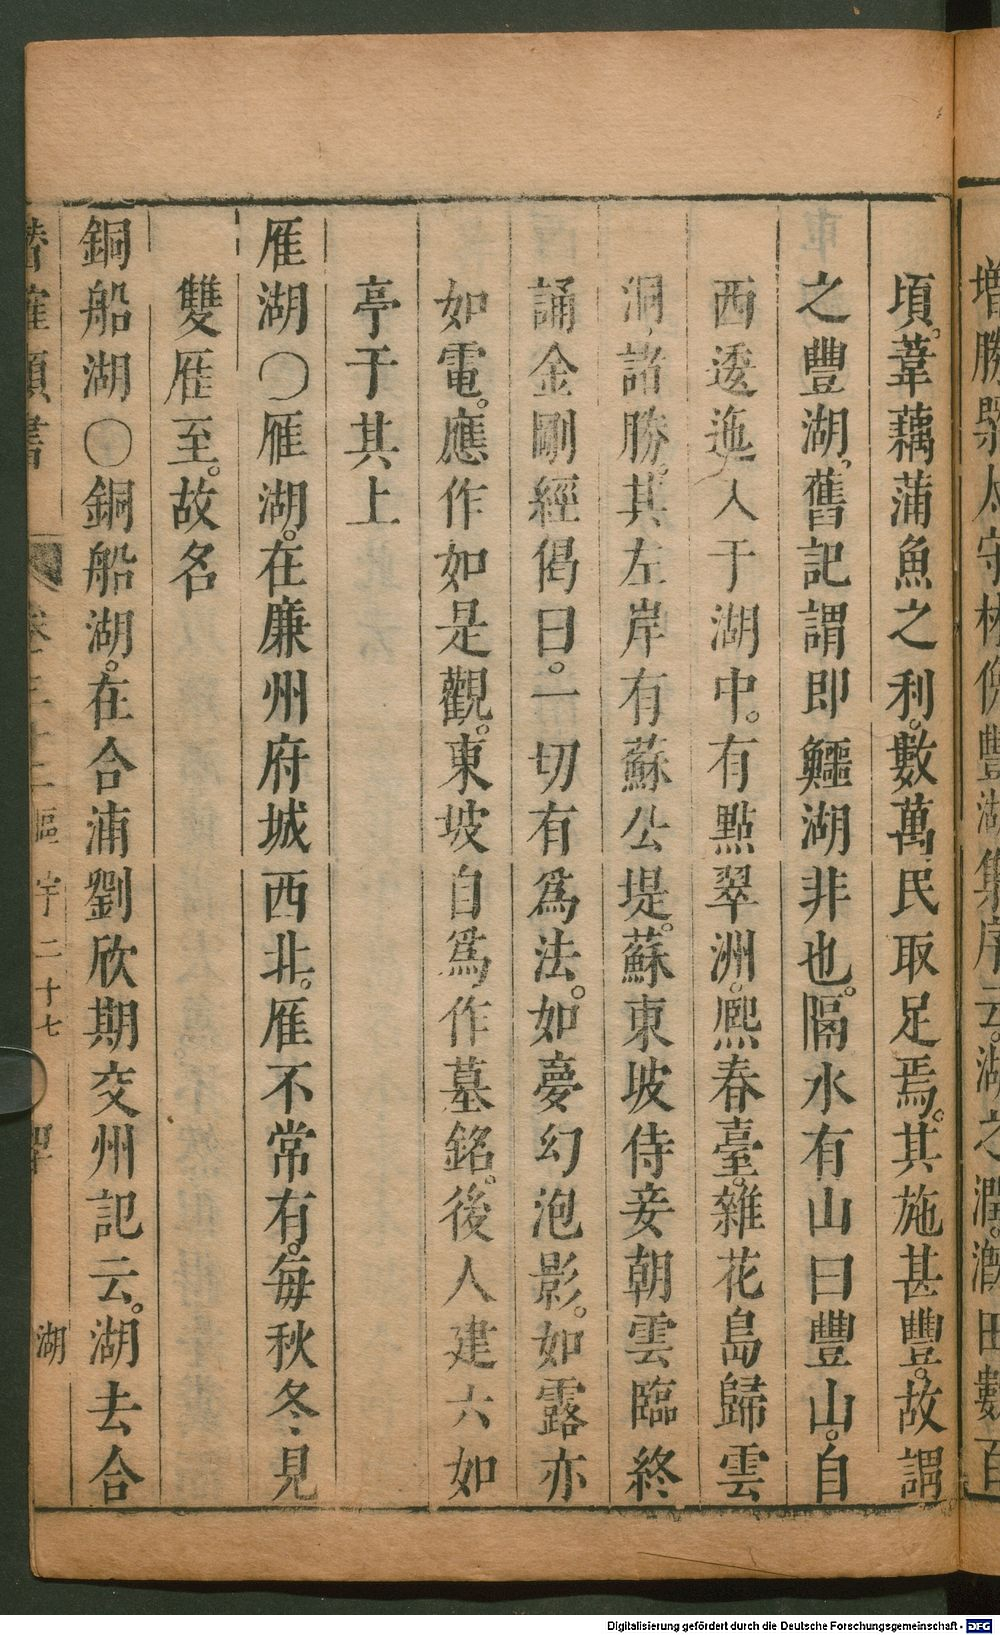 增勝
太守林俛豐湖集序云。湖之潤。溉田數百
頃。葦藕蒲魚之利。數萬民取足焉。其施甚豐。故謂
之豐湖。舊記謂即鱷湖非也。隔水有山曰豐山。自
西逶迤入于湖中。有點翠洲。熙春臺。雜花島歸雲
洞。諸勝。其左岸有蘇公堤。蘇東坡侍妾朝雲臨終
誦金剛經偈曰。一切有爲法。如夢幻泡影。如露亦
如電。應作如是觀。東坡自爲作墓銘。後人建六如
亭于其上
雁湖〇雁湖。在廉州府城西北。雁不常有。每秋冬見
雙雁至。故名
銅船湖〇銅船湖。在合浦劉欣期交州記云。湖去合
潛確類書 卷之三十二 區宇二十七 湖
Digitalisierung gefördert durch die Deutsche Forschungsgemeinschaft - DFG